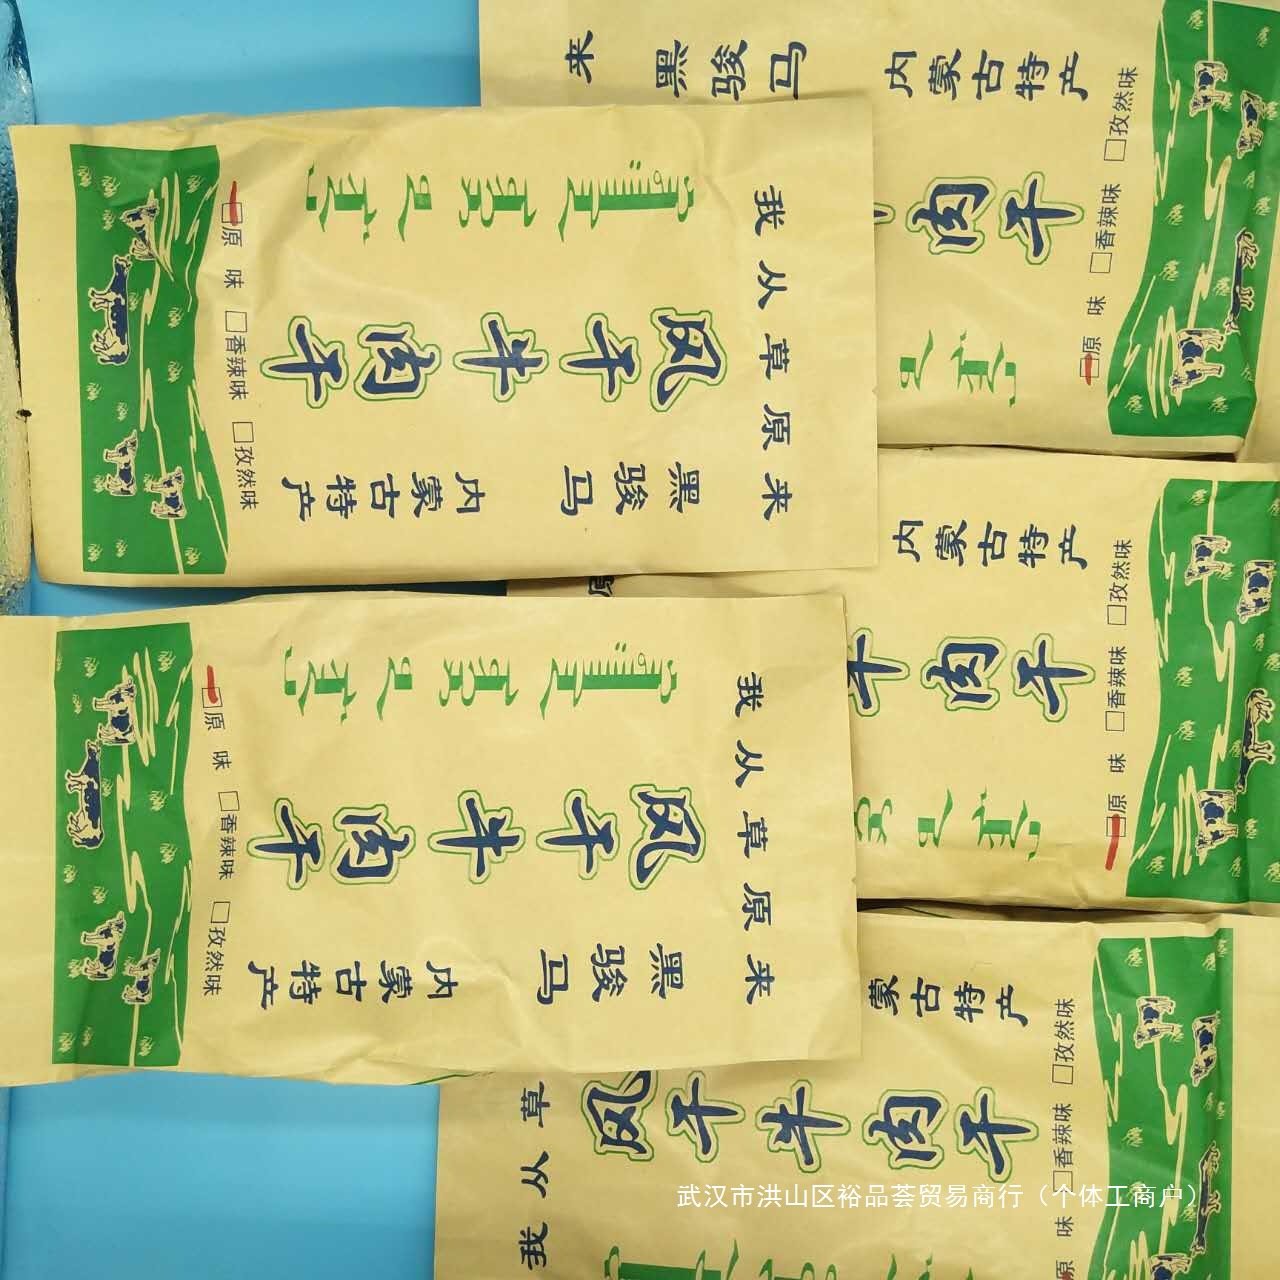 我从草原来
黑骏马
风干牛肉干
内蒙古特产
原味 香辣味 孜然味
我从草原来
黑骏马
风干牛肉干
内蒙古特产
原味 香辣味 孜然味
来
黑骏马
内蒙古特产
肉干
原味 香辣味 孜然味
内蒙古特产
牛肉干
原味 香辣味 孜然味
我从草
蒙古特产
风干牛肉干
原味 香辣味 孜然味
武汉市洪山区裕品荟贸易商行（个体工商户）